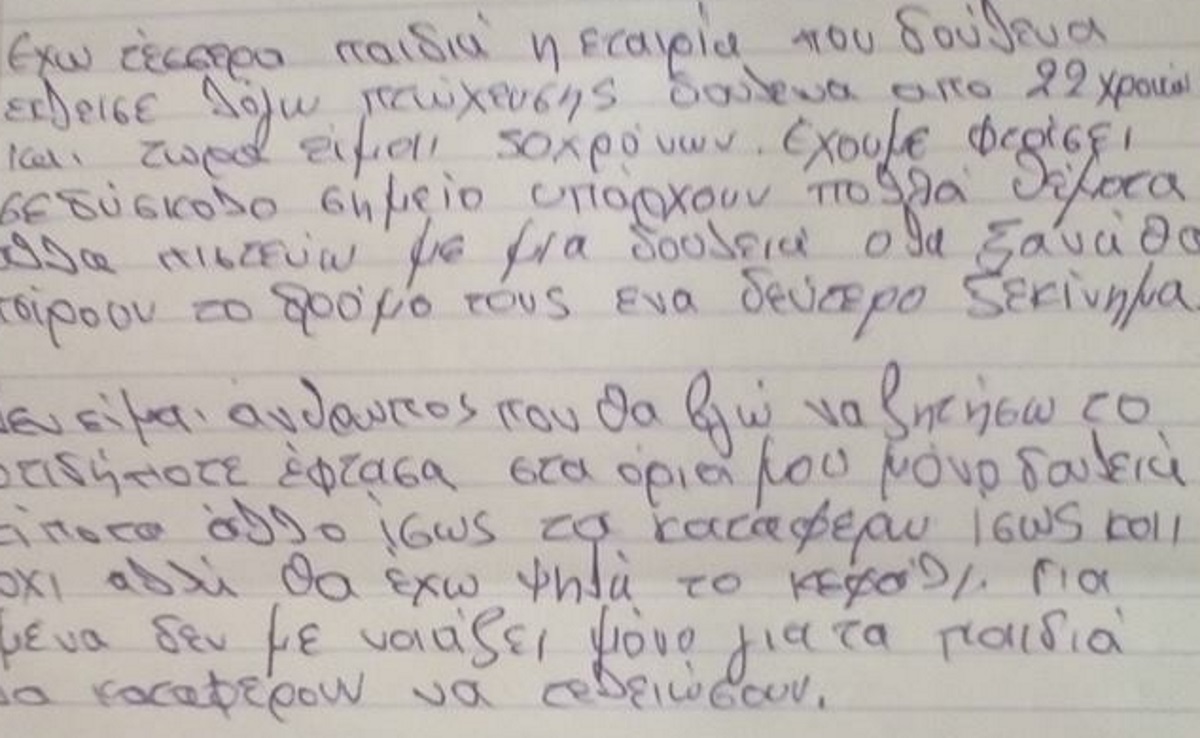 Εχω τέσσερα παιδιά η εταιρία που δούλευα
εκλεισε λόγω πτώχευσης δούλευα απο 22 χρονών
και τωρα είμαι 50χρόνων. Εχουμε φθασει
σε δύσκολο σημείο υπάρχουν πολλά θέματα
αλλα πιστεύω με μια δουλειά ολα ξανά θα
πάρουν το δρόμο τους ενα δεύτερο ξεκίνημα
δεν είμαι ανθρωπος που θα βγώ να ζητήσω το
οτιδήποτε έφτασα στα όρια μου μόνο δουλειά
τίποτα άλλο ίσως τα καταφέρω ισως και
οχι αλλά θα εχω ψηλά το κεφάλι. Για
μενα δεν με νοιάζει μόνο για τα παιδιά
να καταφερουν να τελειώσουν.